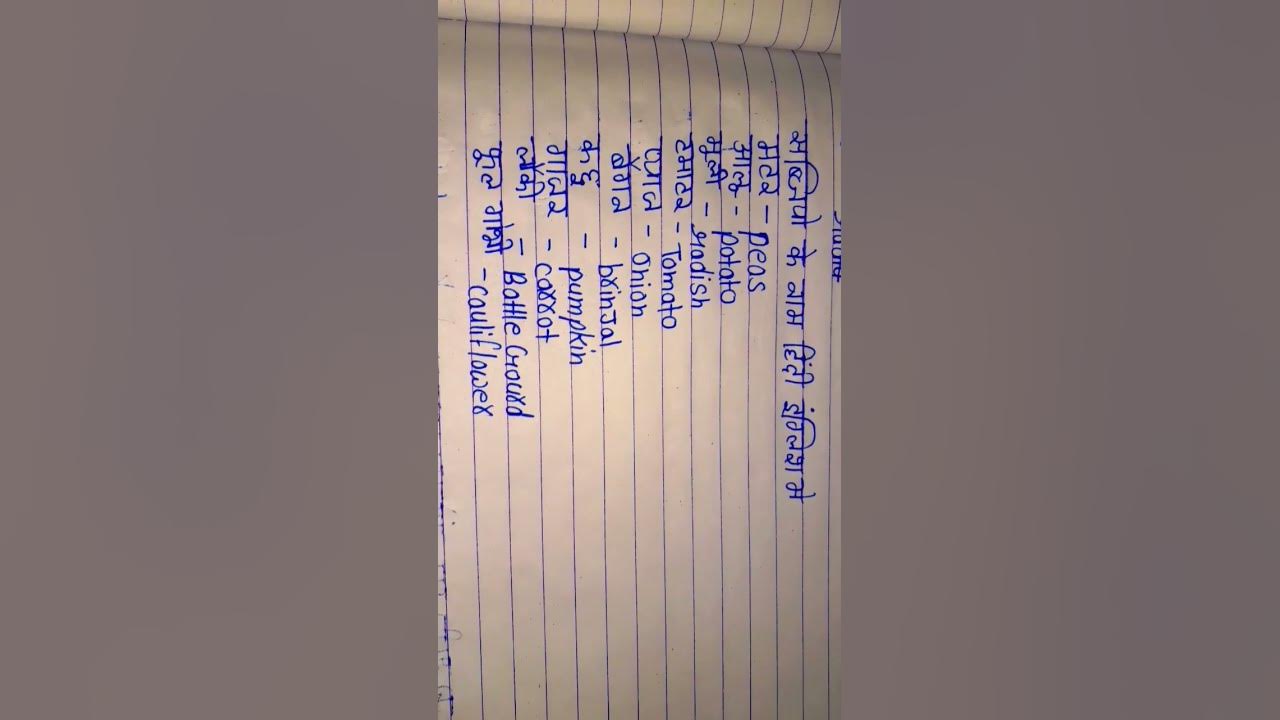 सब्जियो के नाम हिंदी इंग्लिश मे
मटर - peas
आलू - potato
मूली - radish
टमाटर - Tomato
प्याज - Onion
बेंगन - brinJal
कद्दू - pumpkin
गाजर - carrot
लौकी - Bottle Gourd
फूल गोभी - cauliflower